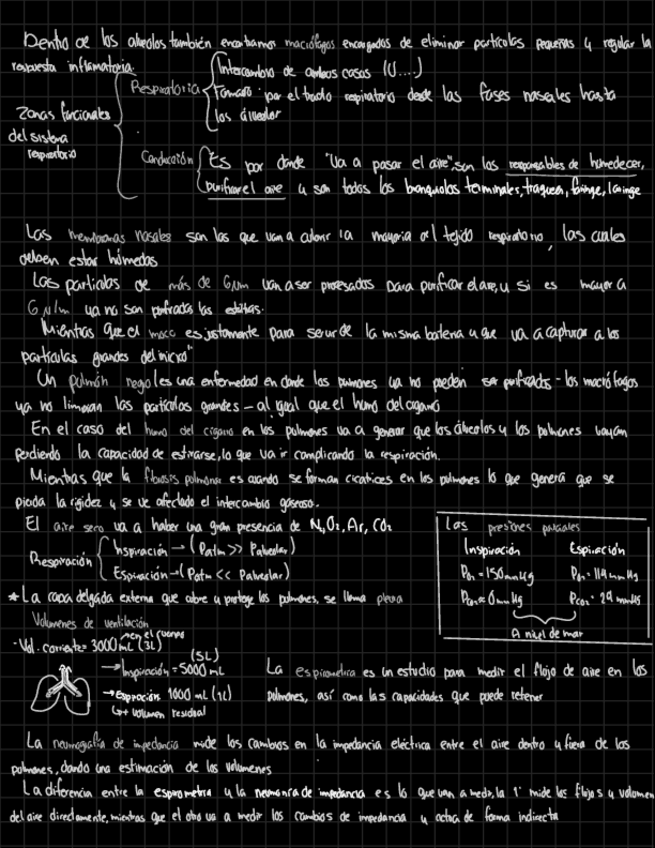 Dentro de los alveolos también encontramos macrófagos encargados de eliminar partículas pequeñas y regular la
respuesta inflamatoria.
Zonas funcionales
del sistema
respiratorio
Respiratoria
Intercambio de ambos gases (U....)
Formado por el tracto respiratorio desde las fosas nasales hasta
los
Conducción
Es por donde "va a pasar el aire", son los responsables de humedecer,
purificar el aire y son todos los bronquiolos terminales, traquea, faringe, laringe
Las membranas nasales son las que van a cubrir la mayoría del tejido respiratorio, las cuales
deben estar húmedas
Las partículas de más de 6 µm van a ser procesados para purificar el aire, y si es mayor a
6 µm ya no son las
Mientras que el moco es justamente para de la misma y que va a capturar a las
partículas grandes del micro"
Un pulmón negro les una enfermedad en donde los pulmones ya no pueden ser purificados - los macrófagos
ya no limpian las partículas grandes - al igual que el humo del cigarro
En el caso del humo del cigarro en los pulmones va a generar que los álveolos y los pulmones vayan
perdiendo la capacidad de estirarse, lo que va ir complicando la respiración.
Mientras que la fibrosis pulmonar es cuando se forman cicatrices en los pulmones lo que genera que se
pierda la rigidez y se ve afectado el intercambio gaseoso.
El aire seco va a haber una gran presencia de N₂, O₂, Ar, CO₂
Respiración
Inspiración → (Patm >> Palveolar)
Espiración → (Patm << Palveolar)
Las presiones parciales
Inspiración Espiración
Po₂ = 150 mmHg Po₂ = 114 mmHg
Pco₂ ≈ 0 mmHg Pco₂ = 29 mmHg
A nivel de mar
* La capa delgada externa que cubre y protege los pulmones, se llama pleura
Volumenes de ventilación
- Vol. corriente = 3000 mL (3L)
→ en el
(5L)
→ Inspiración = 5000 mL
→ Espiración 1000 mL (1L)
↳ + volumen residual
La espirometria es un estudio para medir el flujo de aire en los
pulmones, así como las capacidades que puede retener
La neumografía de impedancia mide los cambios en la impedancia eléctrica entre el aire dentro y fuera de los
pulmones, dando una estimación de los volumenes
La diferencia entre la espirometria y la de impedancia es lo que van a medir, la 1° mide los flujos y volumen
del aire directamente, mientras que el otro va a medir los cambios de impedancia y actua de forma indirecta